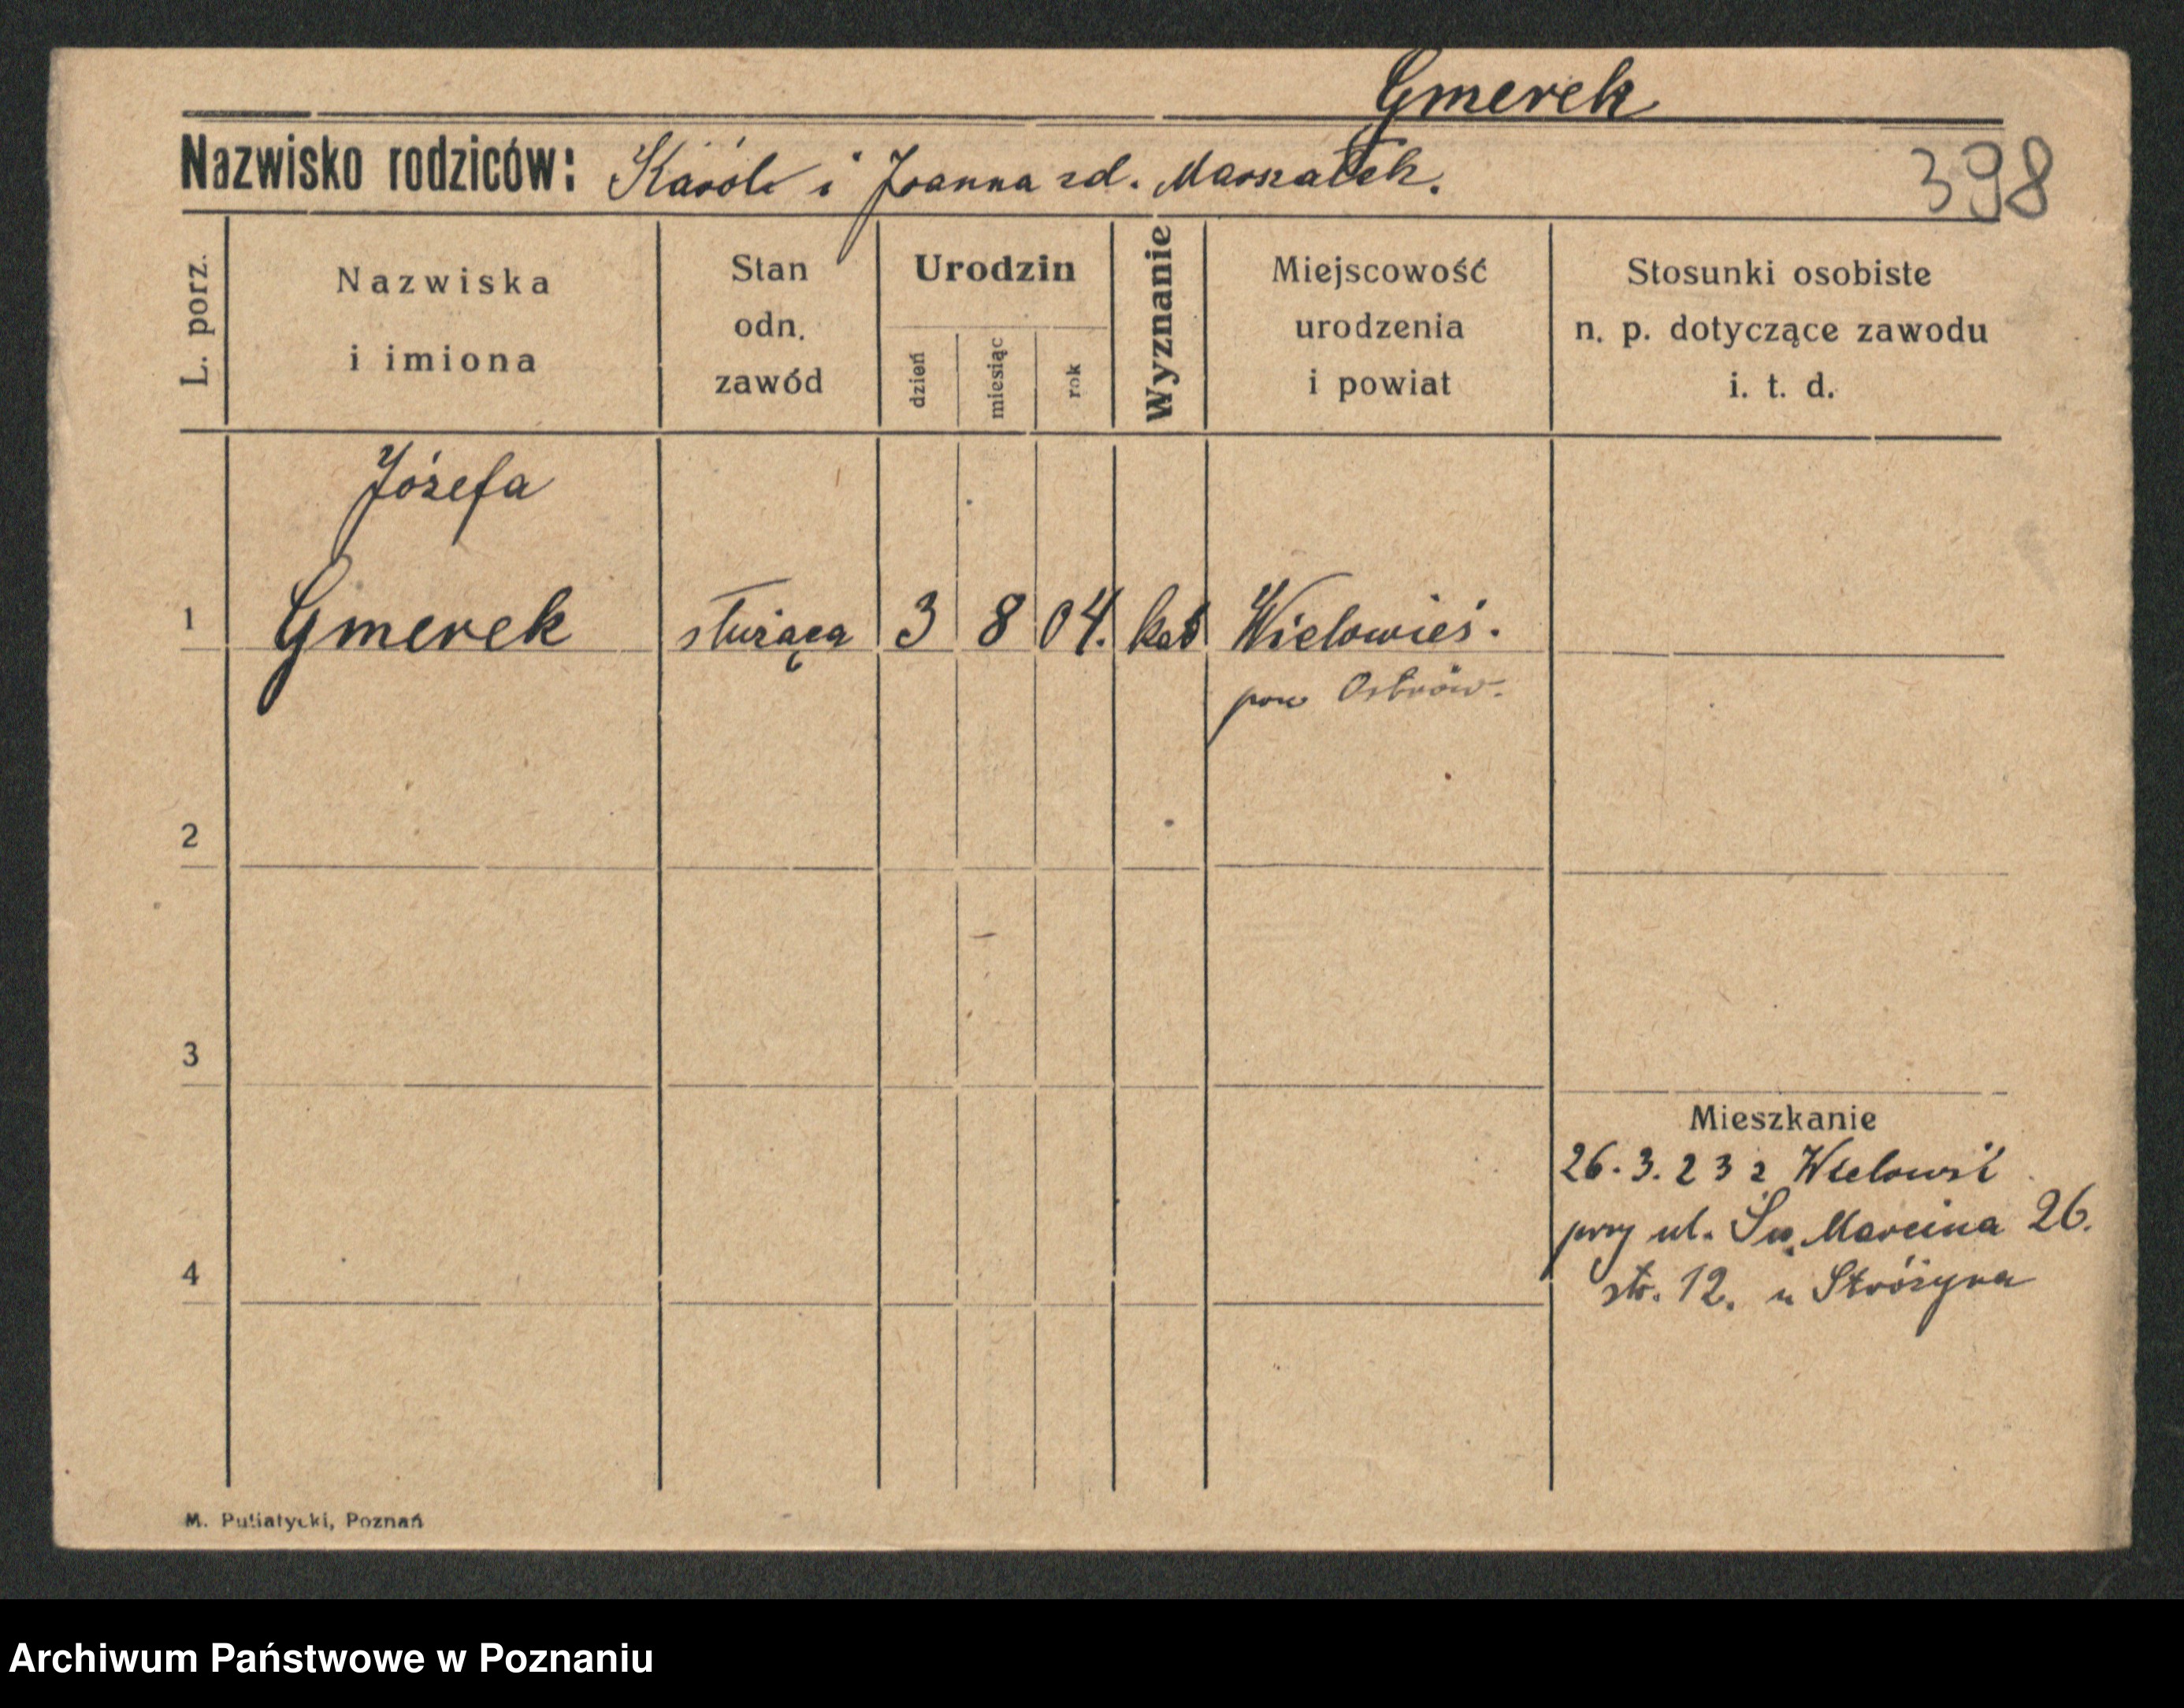 Gmerek
Nazwisko rodziców: Karól i Joanna zd. Marszałek.
398
L. porz.
Nazwiska
i imiona
Stan
odn.
zawód
Urodzin
dzień
miesiąc
rok
Wyznanie
Miejscowość
urodzenia
i powiat
Stosunki osobiste
n. p. dotyczące zawodu
i. t. d.
Józefa
1 Gmerek służąca 3 8 04. kat Wielowieś.
pow Ostrów.
2
3
Mieszkanie
26.3.23 z Wielowsi
przy ul. Św. Marcina 26.
4
str. 12. u Stróżyna
M. Putiatycki, Poznań
Archiwum Państwowe w Poznaniu